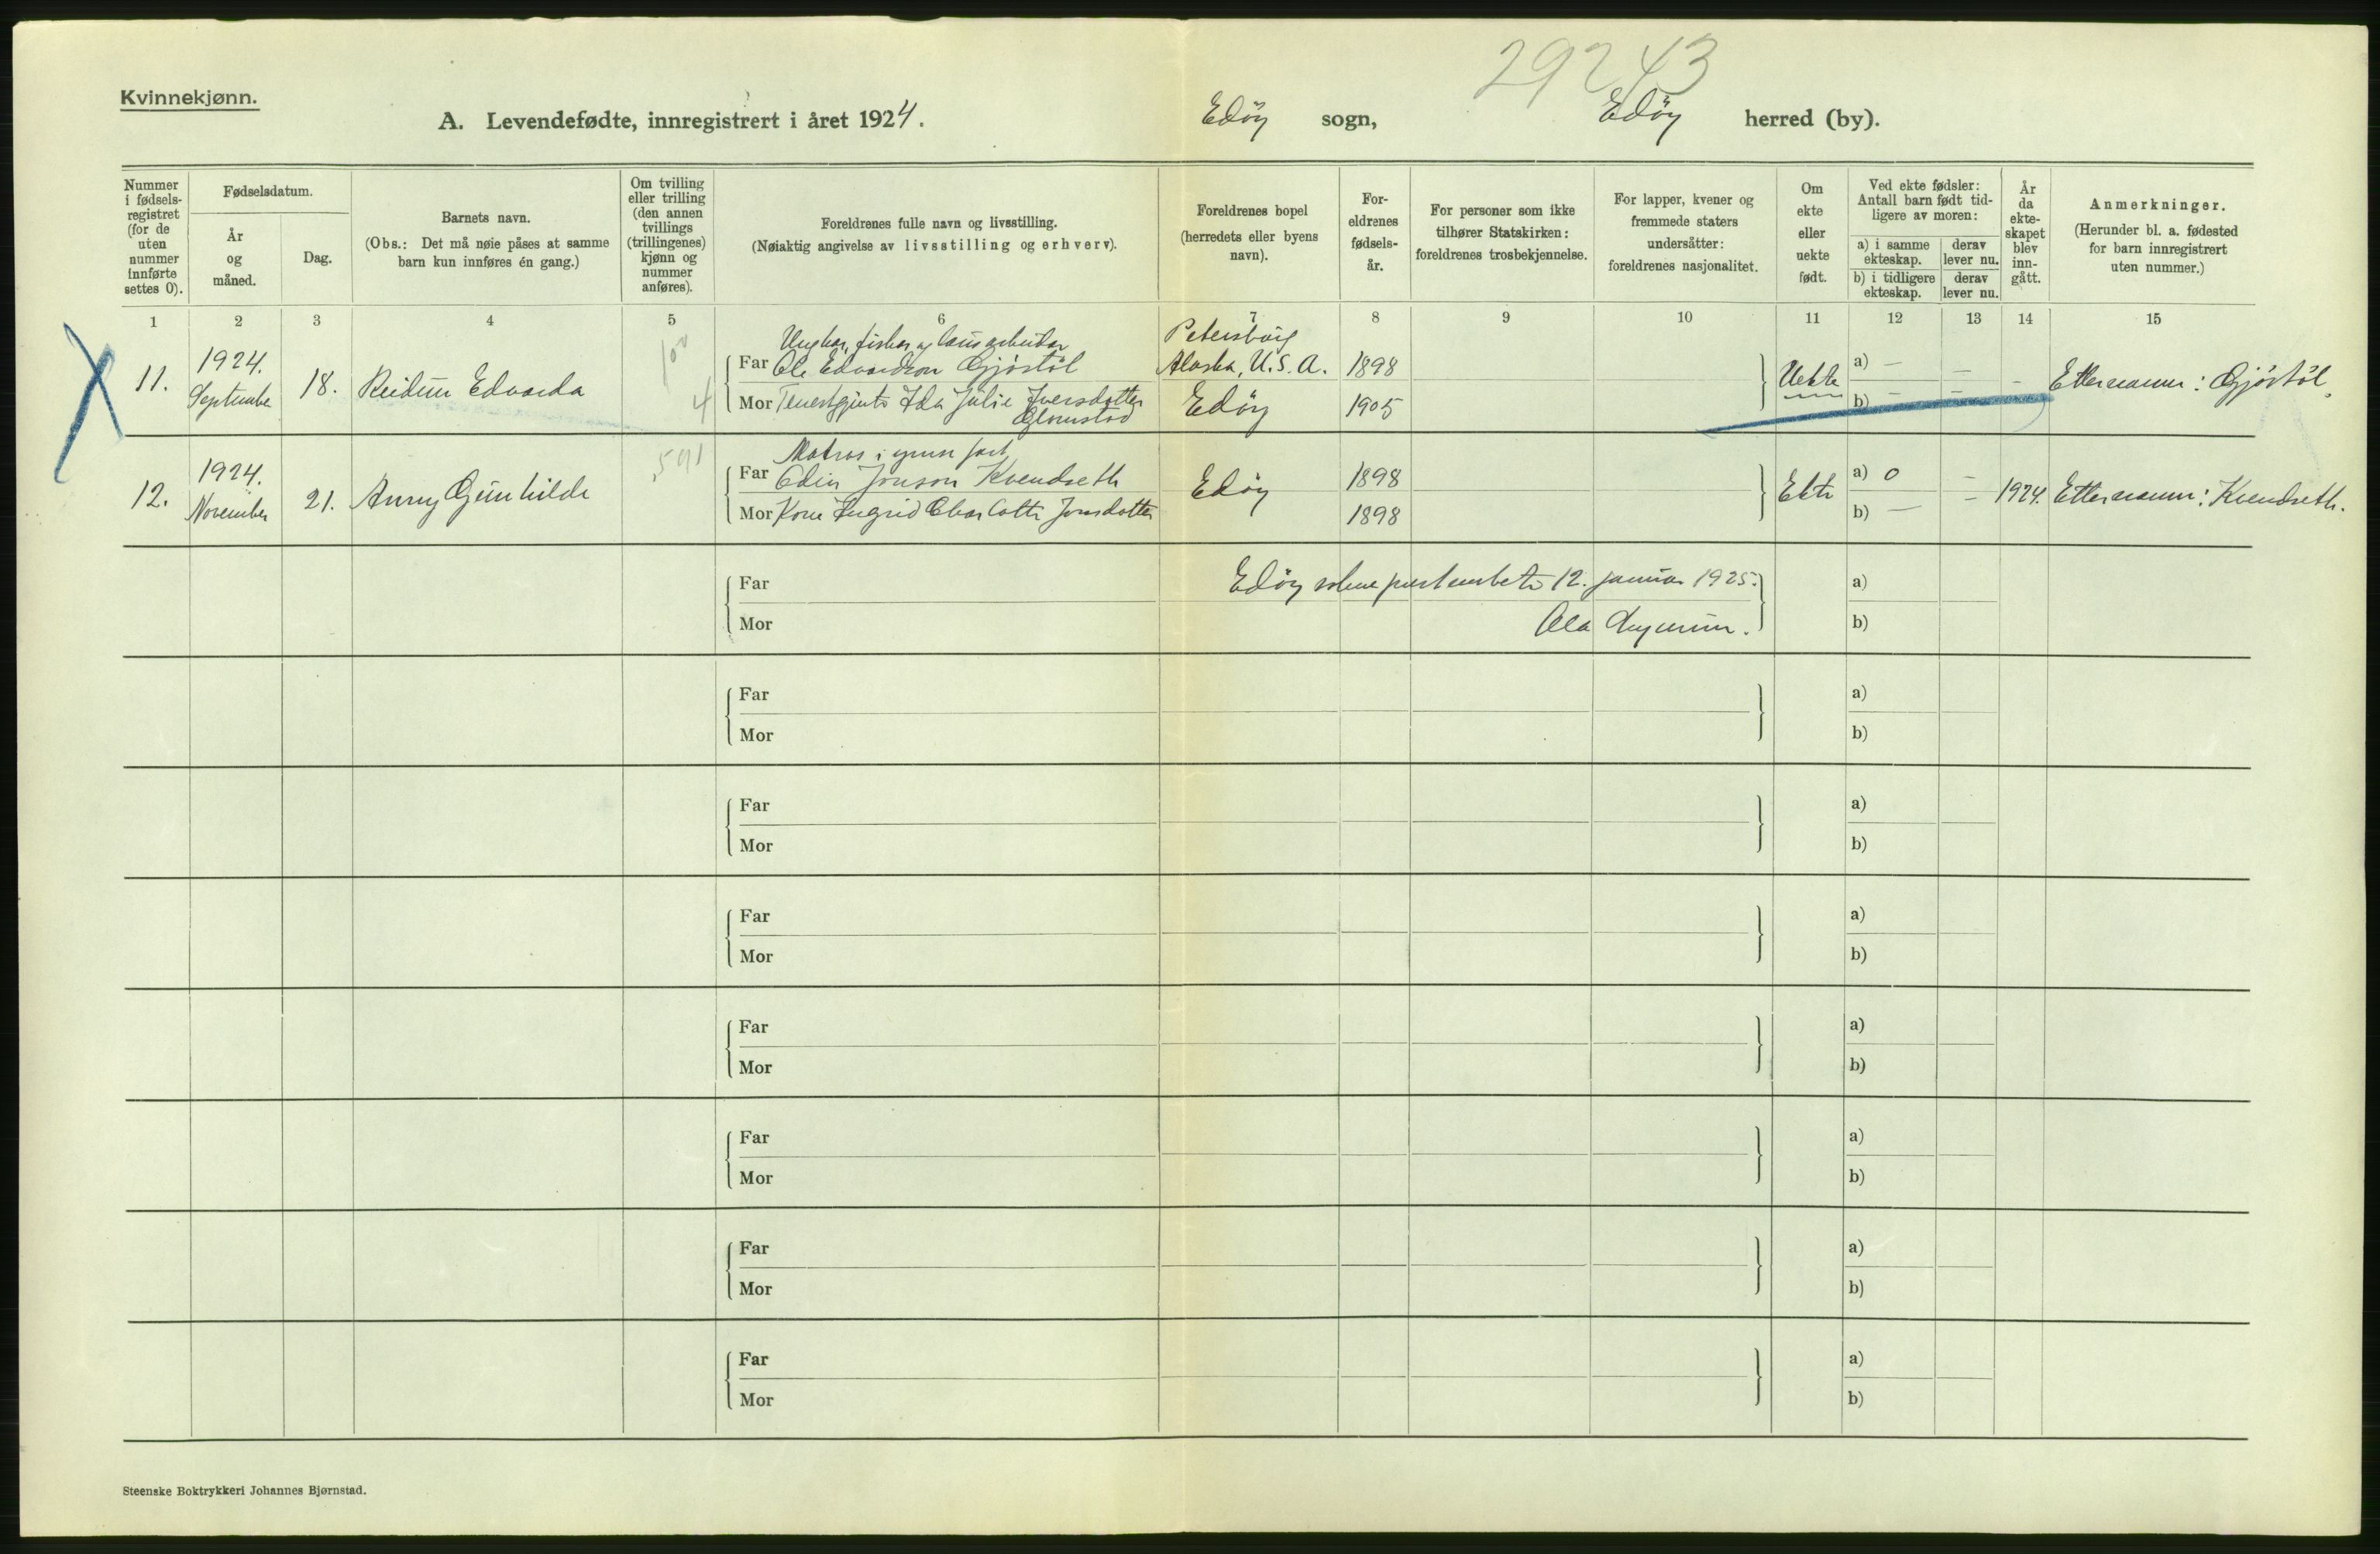 29243
Kvinnekjønn.
A. Levendefødte, innregistrert i året 1924. Edöy sogn, Edöy herred (by).
Nummer i fødsels-registret (for de uten nummer innførte settes 0).
Fødselsdatum.
År og måned.
Dag.
Barnets navn.
(Obs.: Det må nøie påses at samme barn kun innføres én gang.)
Om tvilling eller trilling (den annen tvillings (trillingenes) kjønn og nummer anføres).
Foreldrenes fulle navn og livsstilling.
(Nøiaktig angivelse av livsstilling og erhverv).
Foreldrenes bopel (herredets eller byens navn).
For-eldrenes fødsels-år.
For personer som ikke tilhører Statskirken: foreldrenes trosbekjennelse.
For lapper, kvener og fremmede staters undersåtter: foreldrenes nasjonalitet.
Om ekte eller uekte født.
Ved ekte fødsler: Antall barn født tid-ligere av moren:
a) i samme ekteskap.
derav lever nu.
b) i tidligere ekteskap.
derav lever nu.
År da ekte-skapet blev inn-gått.
Anmerkninger.
(Herunder bl. a. fødested for barn innregistrert uten nummer.)
1 2 3 4 5 6 7 8 9 10 11 12 13 14 15
Ungkar, fiskar og lausarbeidar Petersburg
11. 1924. September 18. Reidun Edvarda Far Ole Edvardson Gjöstöl Alaska, U.S.A. 1898 Uekte a) — — – Etternamn: Gjöstöl.
4 Mor Tenestgjente Ida Julie Iversdotter Glomstad Edöy 1905 b) – –
591 Matros i
12. 1924. November 21. Anny Gunhilde Far Edin Jonson Kvendseth Edöy 1898 Ekte a) 0 – 1924. Etternamn: Kvendseth.
Mor Kone Ingrid Charlotte Jonsdotter 1898 b) — –
Far Edöy sokneprestembete 12. januar 1925. a)
Mor Ola b)
Far a)
Mor b)
Far a)
Mor b)
Far a)
Mor b)
Far a)
Mor b)
Far a)
Mor b)
Far a)
Mor b)
Far a)
Mor b)
Steenske Boktrykkeri Johannes Bjørnstad.